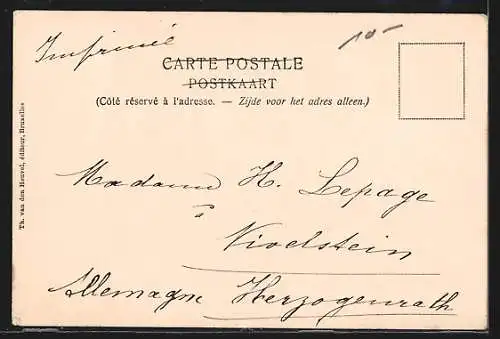 Imprimé
10-
CARTE POSTALE
POSTKAART
(Côté réservé à l'adresse. — Zijde voor het adres alleen.)
Th. van den Heuvel, éditeur, Bruxelles
Madame H. Lepage
à
Nivelstein
Allemagne Herzogenrath